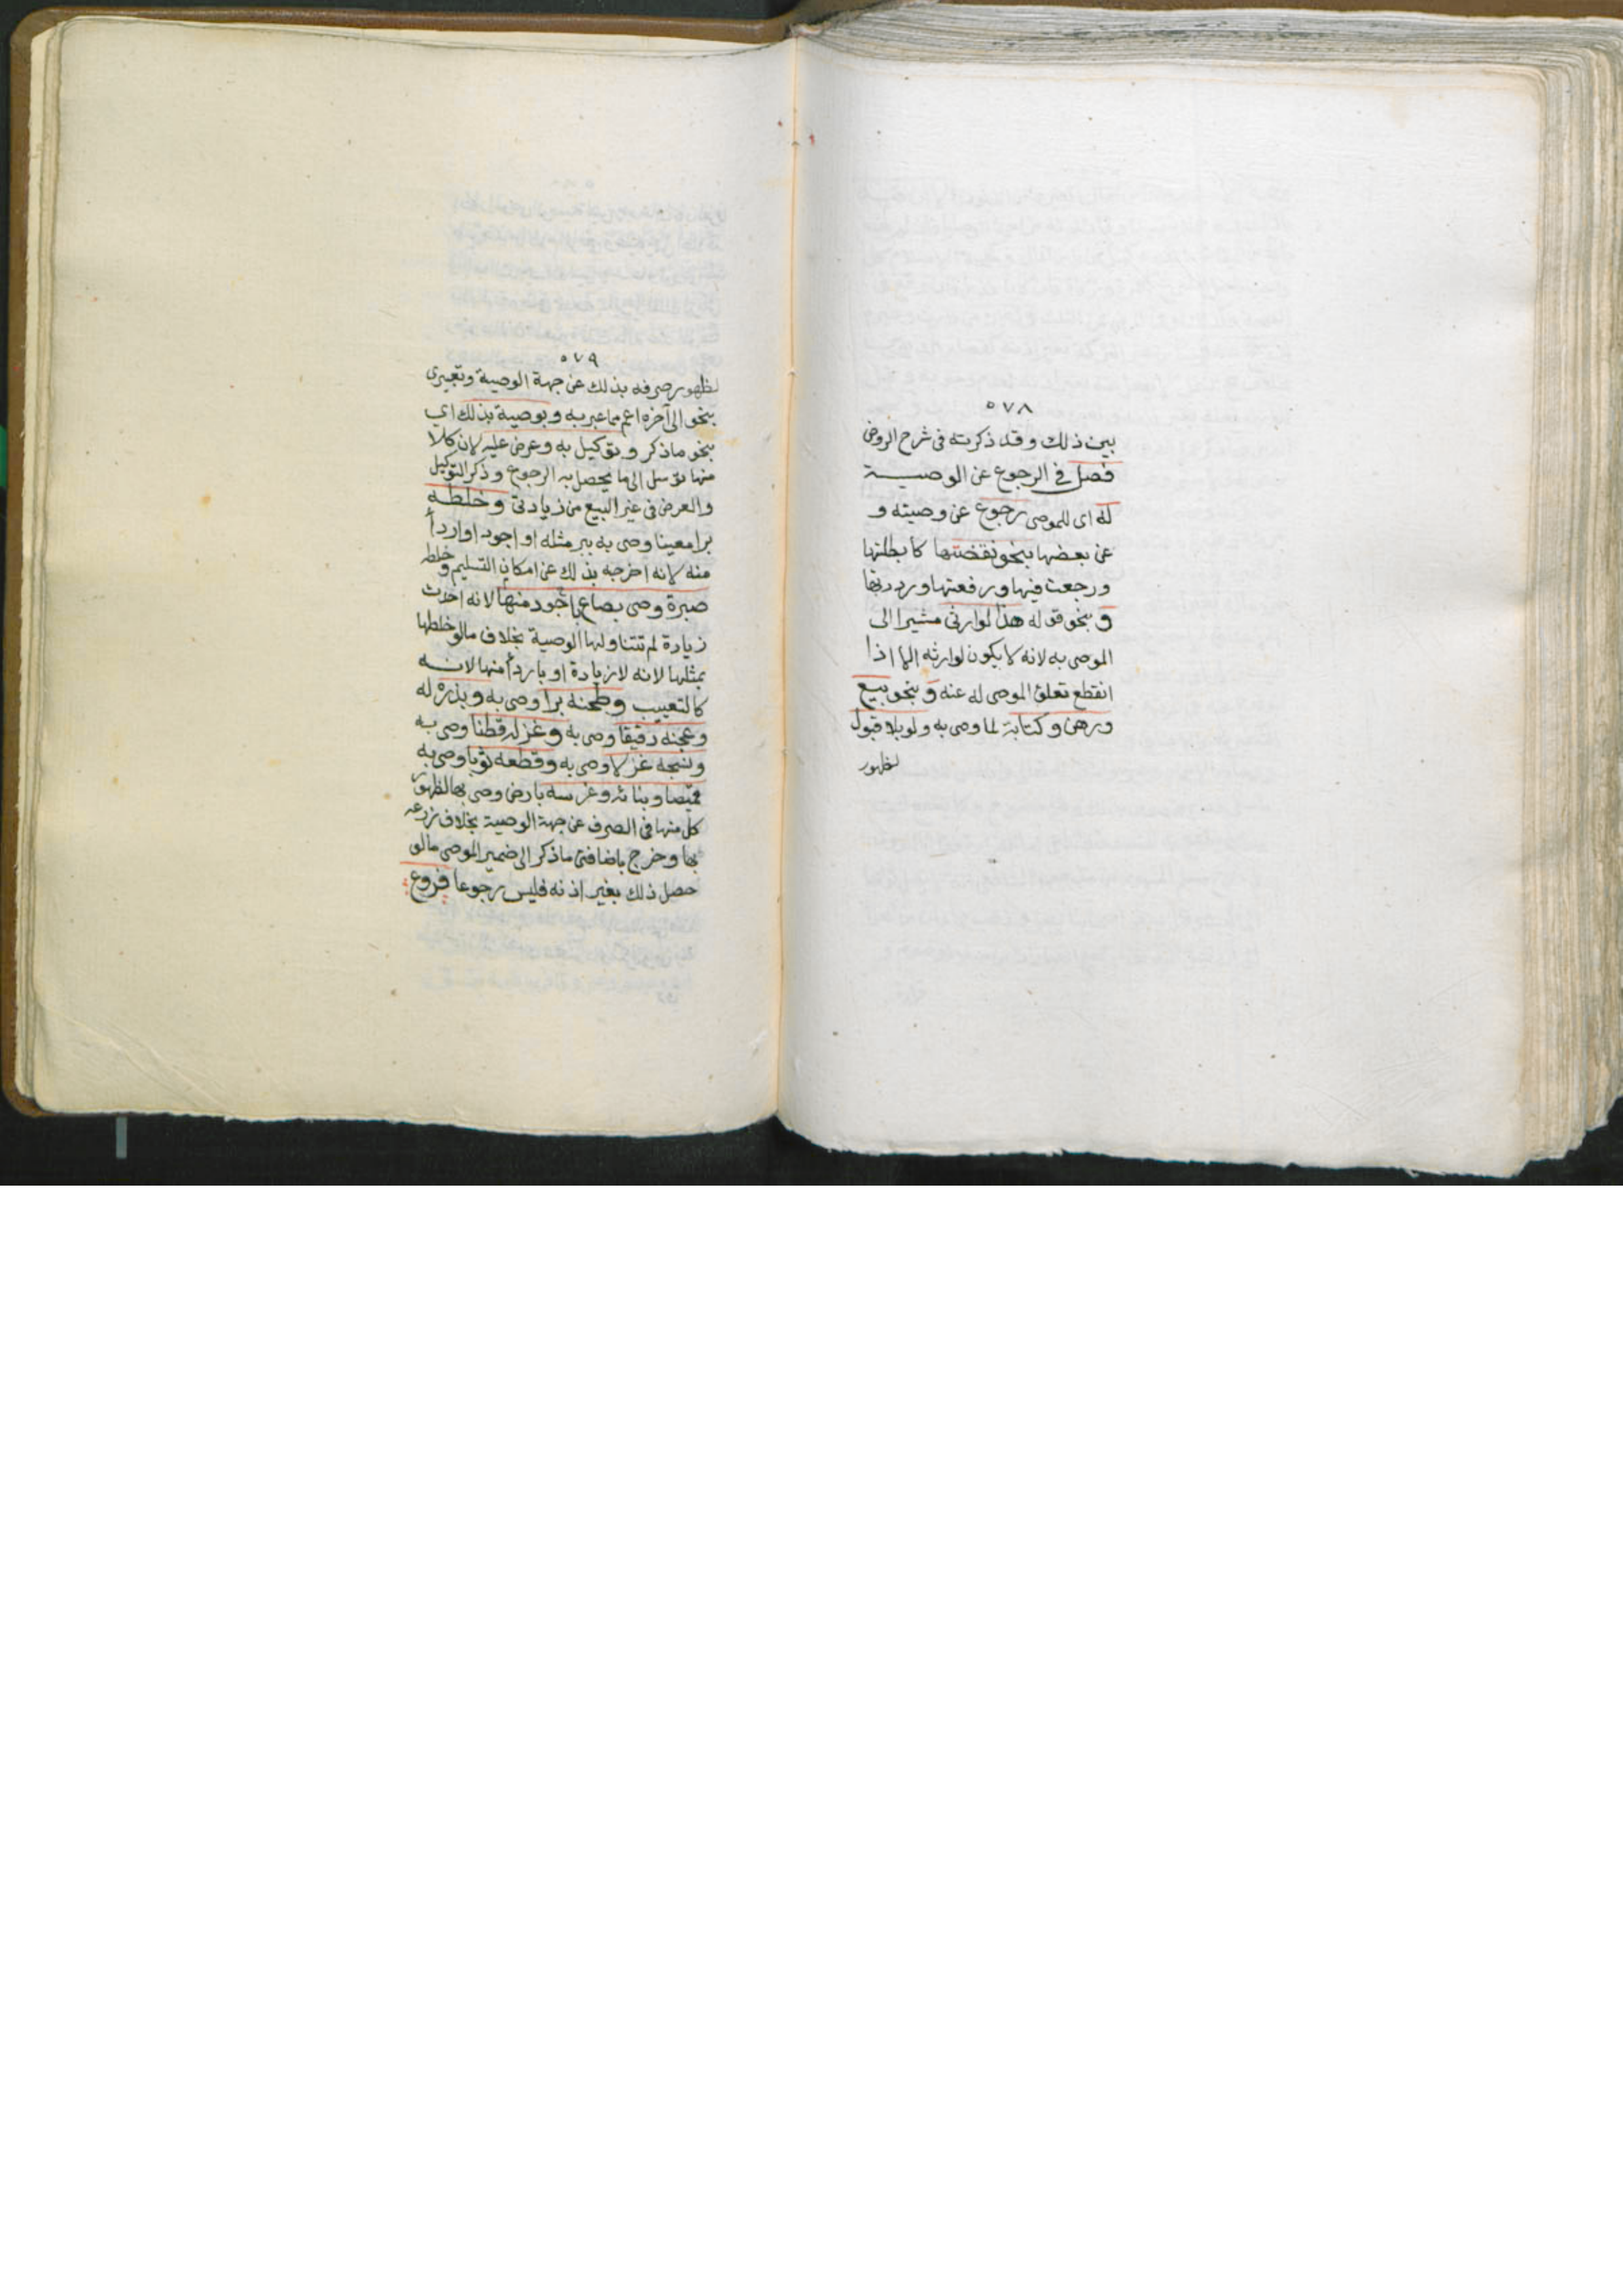 ٥٧٨
بين ذلك وقد ذكرته في شرح الروض
فصل في الرجوع عن الوصية
له اى للموصى رجوع عن وصيته و
عن بعضها بنحو نقضتها كأبطلتها
ورجعت فيها ورفعتها ورددتها
وبنحو قوله هذا لوارثى مشيرا الى
الموصى به لانه لا يكون لوارثه الا اذا
انقطع تعلق الموصى له عنه وبنحو بيع
ورهن وكتابة لما وصى به ولو بلا قبول
لظهور
٥٧٩
لظهور صرفه بذلك عن جهة الوصية وتعبيرى
بنحو الى آخره اعم مما عبر به وبوصية بذلك اي
بنحو ما ذكر وتوكيل به وعرض عليه لان كلا
منها توسل الى ما يحصل به الرجوع وذكر التوكيل
والعرض في غير البيع من زيادتى وخلطه
برا معينا وصى به ببر مثله او اجود او اردأ
منه لانه اخرجه بذلك عن امكان التسليم وخلطه
صبرة وصى بصاع منها باجود منها لانه احدث
زيادة لم تتناولها الوصية بخلاف ما لو خلطها
بمثلها لانه لا زيادة او باردأ منها لانه
كالتعييب وطحنه برا وصى به وبذره له
وعجنه دقيقا وصى به وغزله قطنا وصى به
ونسجه غزلا وصى به وقطعه ثوبا وصى به
قميصا وبنائه وغرسه بارض وصى بها لظهور
كل منها في الصرف عن جهة الوصية بخلاف زرعه
بها وخرج باضافتى ما ذكر الى ضمير الموصى ما لو
حصل ذلك بغير اذنه فليس رجوعا فروع